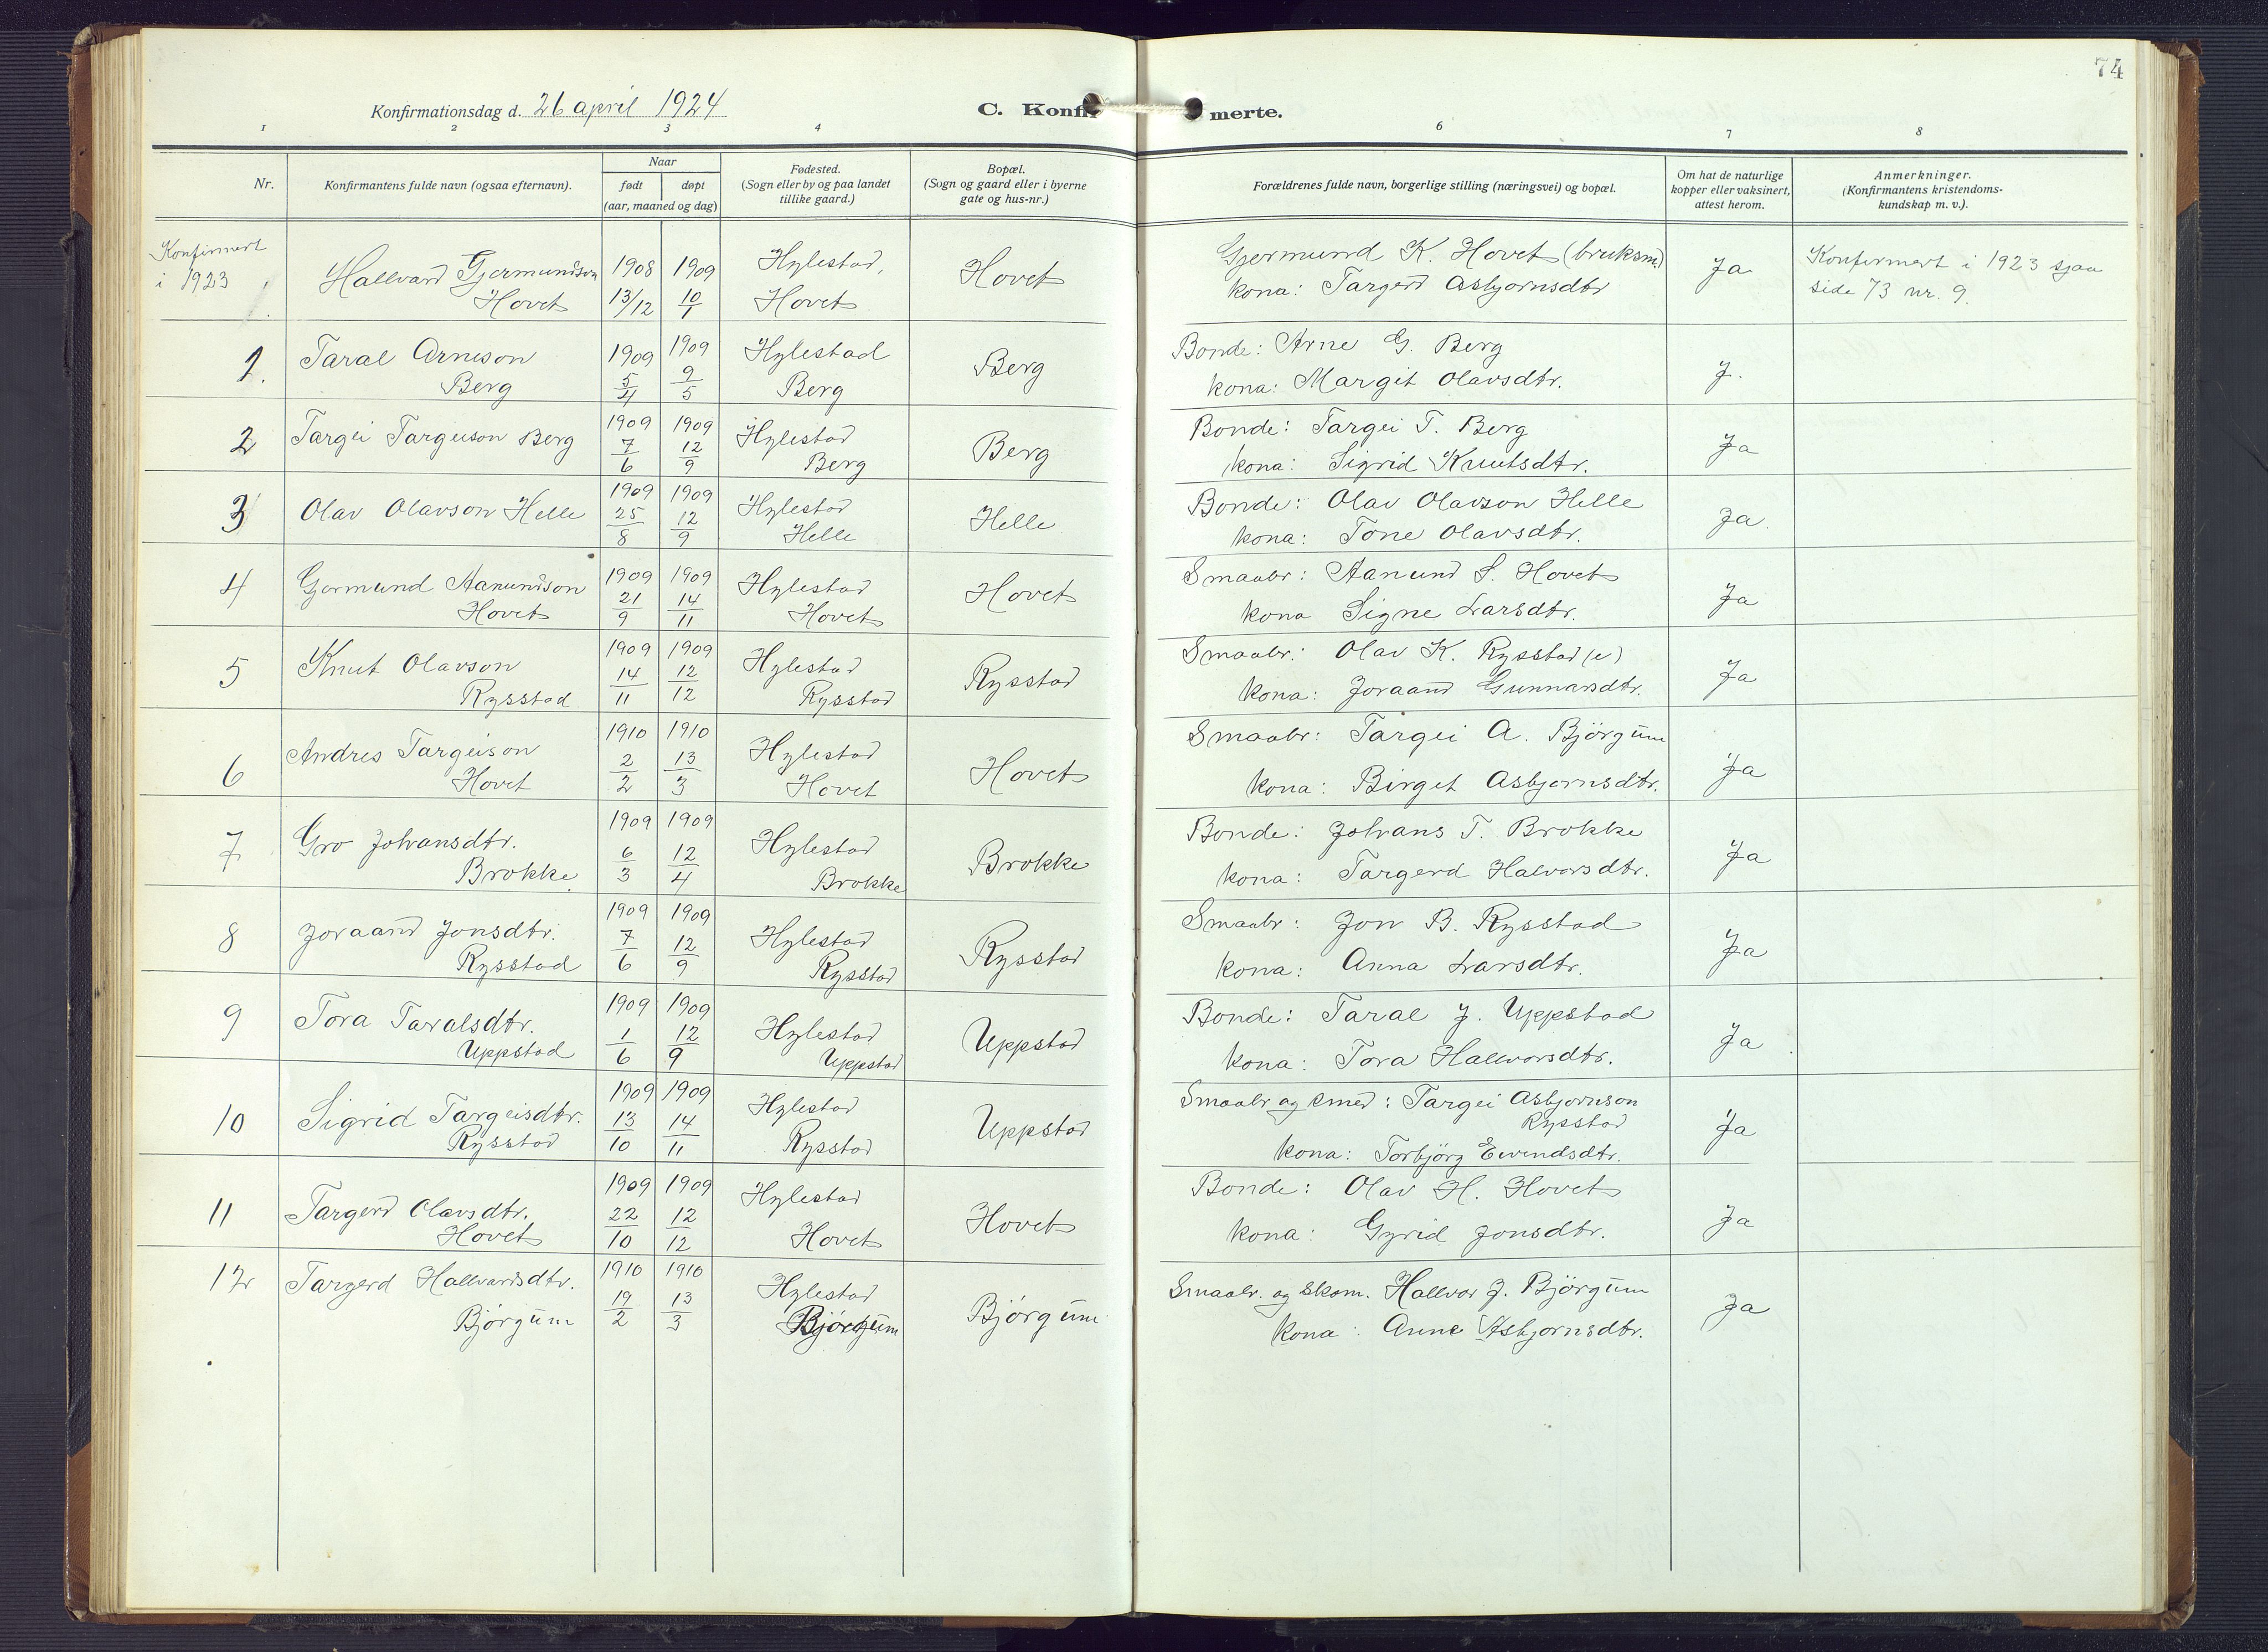 74
Konfirmationsdag d. 26 april 1924
C. Konfirmerte.
1 2 3 4 6 7 8
Nr.
Konfirmantens fulde navn (ogsaa efternavn).
Naar
født døpt
(aar, maaned og dag)
Fødested.
(Sogn eller by og paa landet
tillike gaard.)
Bopæl.
(Sogn og gaard eller i byerne
gate og hus-nr.)
Forældrenes fulde navn, borgerlige stilling (næringsvei) og bopæl.
Om hat de naturlige
kopper eller vaksinert,
attest herom.
Anmerkninger.
(Konfirmantens kristendoms-
kundskap m. v.).
Konfirmert
i 1923
Hallvard Gjermundson
Hovet
1908 13/12
1909 10/1
Hylestad,
Hovet
Hovet
Gjermund K. Hovet (bruksm)
kona: Targerd Asbjornsdtr
Ja
Konfirmert i 1923 sjaa
side 73 nr. 9.
1.
Taral Arneson
Berg
1909 5/4
1909 9/5
Hylestad
Berg
Berg
Bonde: Arne G. Berg
kona: Margit Olavsdtr.
J.
2
Targei Targeison Berg
1909 7/6
1909 12/9
Hylestad
Berg
Berg
Bonde: Targei T. Berg
kona: Sigrid Knutsdtr.
Ja
3
Olav Olavson Helle
1909 25/8
1909 12/9
Hylestad
Helle
Helle
Bonde: Olav Olavson Helle
kona: Tone Olavsdtr.
Ja.
4
Gjermund Aanundson
Hovet
1909 21/9
1909 14/11
Hylestad
Hovet
Hovet
Smaabr: Aanund S. Hovet
kona Signe Larsdtr.
Ja
5
Knut Olavson
Rysstad
1909 14/11
1909 12/12
Hylestad
Rysstad
Rysstad
Smaabr: Olav K. Rysstad (e)
kona: Joraand Gunnarsdtr.
Ja
6
Andres Targeison
Hovet
1910 2/2
1910 13/3
Hylestad
Hovet
Hovet
Smaabr: Targei A. Björgum
kona: Birget Asbjornsdtr.
Ja
7
Gro Johansdtr.
Brokke
1909 6/3
1909 12/4
Hylestad
Brokke
Brokke
Bonde: Johans T. Brokke
kona: Targerd Halvorsdtr.
Ja
8
Joraand Jonsdtr.
Rysstad
1909 7/6
1909 12/9
Hylestad
Rysstad
Rysstad
Smaabr: Jon B. Rysstad
kona: Anna Larsdtr.
Ja
9
Tora Taralsdtr.
Uppstad
1909 1/6
1909 12/9
Hylestad
Uppstad
Uppstad
Bonde: Taral J. Uppstad
kona: Tora Hallvorsdtr.
Ja
10
Sigrid Targeisdtr.
Rysstad
1909 13/10
1909 14/11
Hylestad
Rysstad
Uppstad
Smaabr og smed: Targei Asbjornson
Rysstad
kona: Torbjörg Eivindsdtr.
Ja
11
Targerd Olavsdtr.
Hovet
1909 22/10
1909 12/12
Hylestad
Hovet
Hovet
Bonde: Olav H. Hovet
kona: Gyrid Jonsdtr.
Ja
12
Targerd Hallvardsdtr.
Björgum
1910 19/2
1910 13/3
Hylestad
Björgum
Björgum
Smaabr. og skom. Hallvor J. Björgum
kona: Anne Asbjornsdtr.
Ja